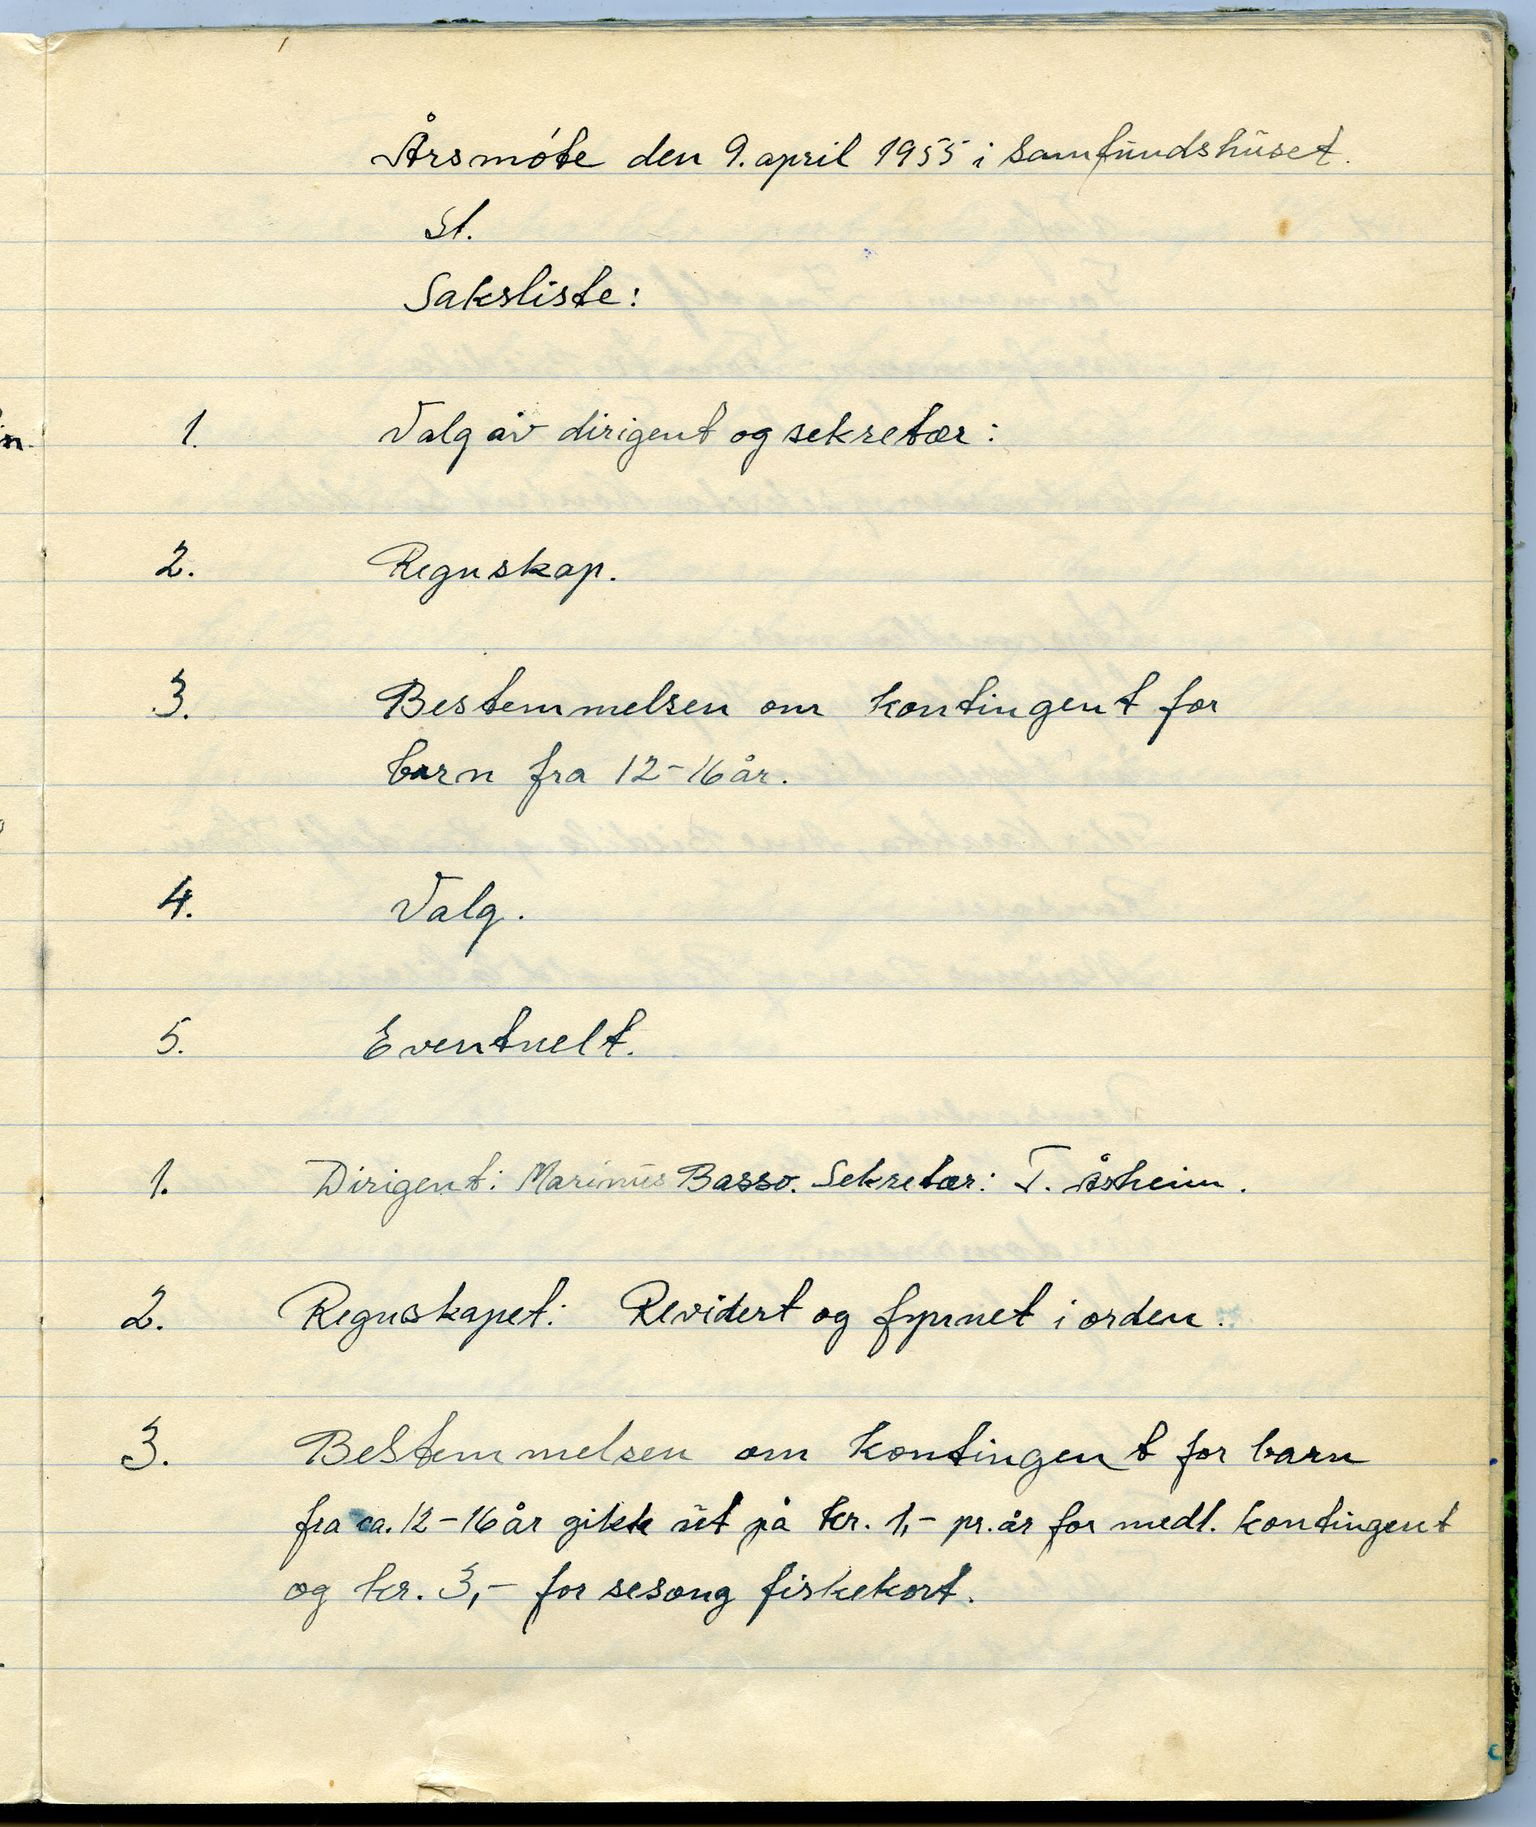 Årsmøte den 9. april 1955 i Samfundshuset.
St.
Saksliste:
1. Valg av dirigent og sekretær:
2. Regnskap.
3. Bestemmelsen om kontingent for
barn fra 12-16 år.
4. Valg.
5. Eventuelt.
1. Dirigent: Marinus Basso. Sekretær: T. Åsheim.
2. Regnskapet: Revidert og fynnet i orden.
3. Bestemmelsen om kontingent for barn
fra ca. 12-16 år gikk ut på kr. 1,- pr. år for medl. kontingent
og kr. 3,- for sesong fiskekort.